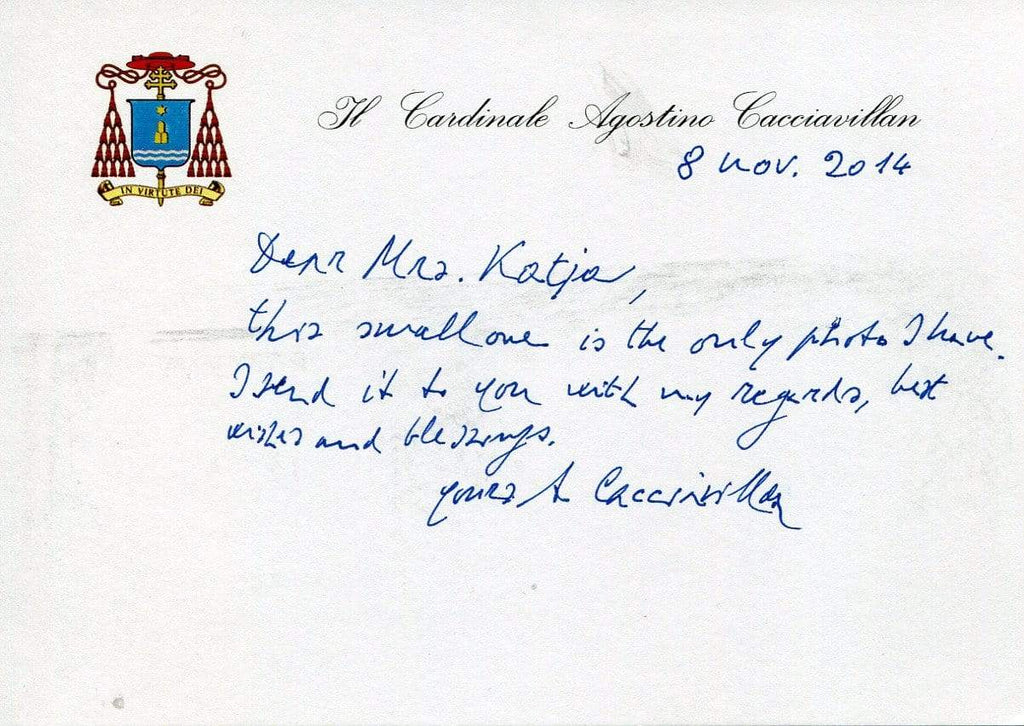 Il Cardinale Agostino Cacciavillan
8 nov. 2014
IN VIRTUTE DEI
Dear Mrs. Katja,
this small one is the only photo I have.
I send it to you with my regards, best
wishes and blessings.
yours A Cacciavillan